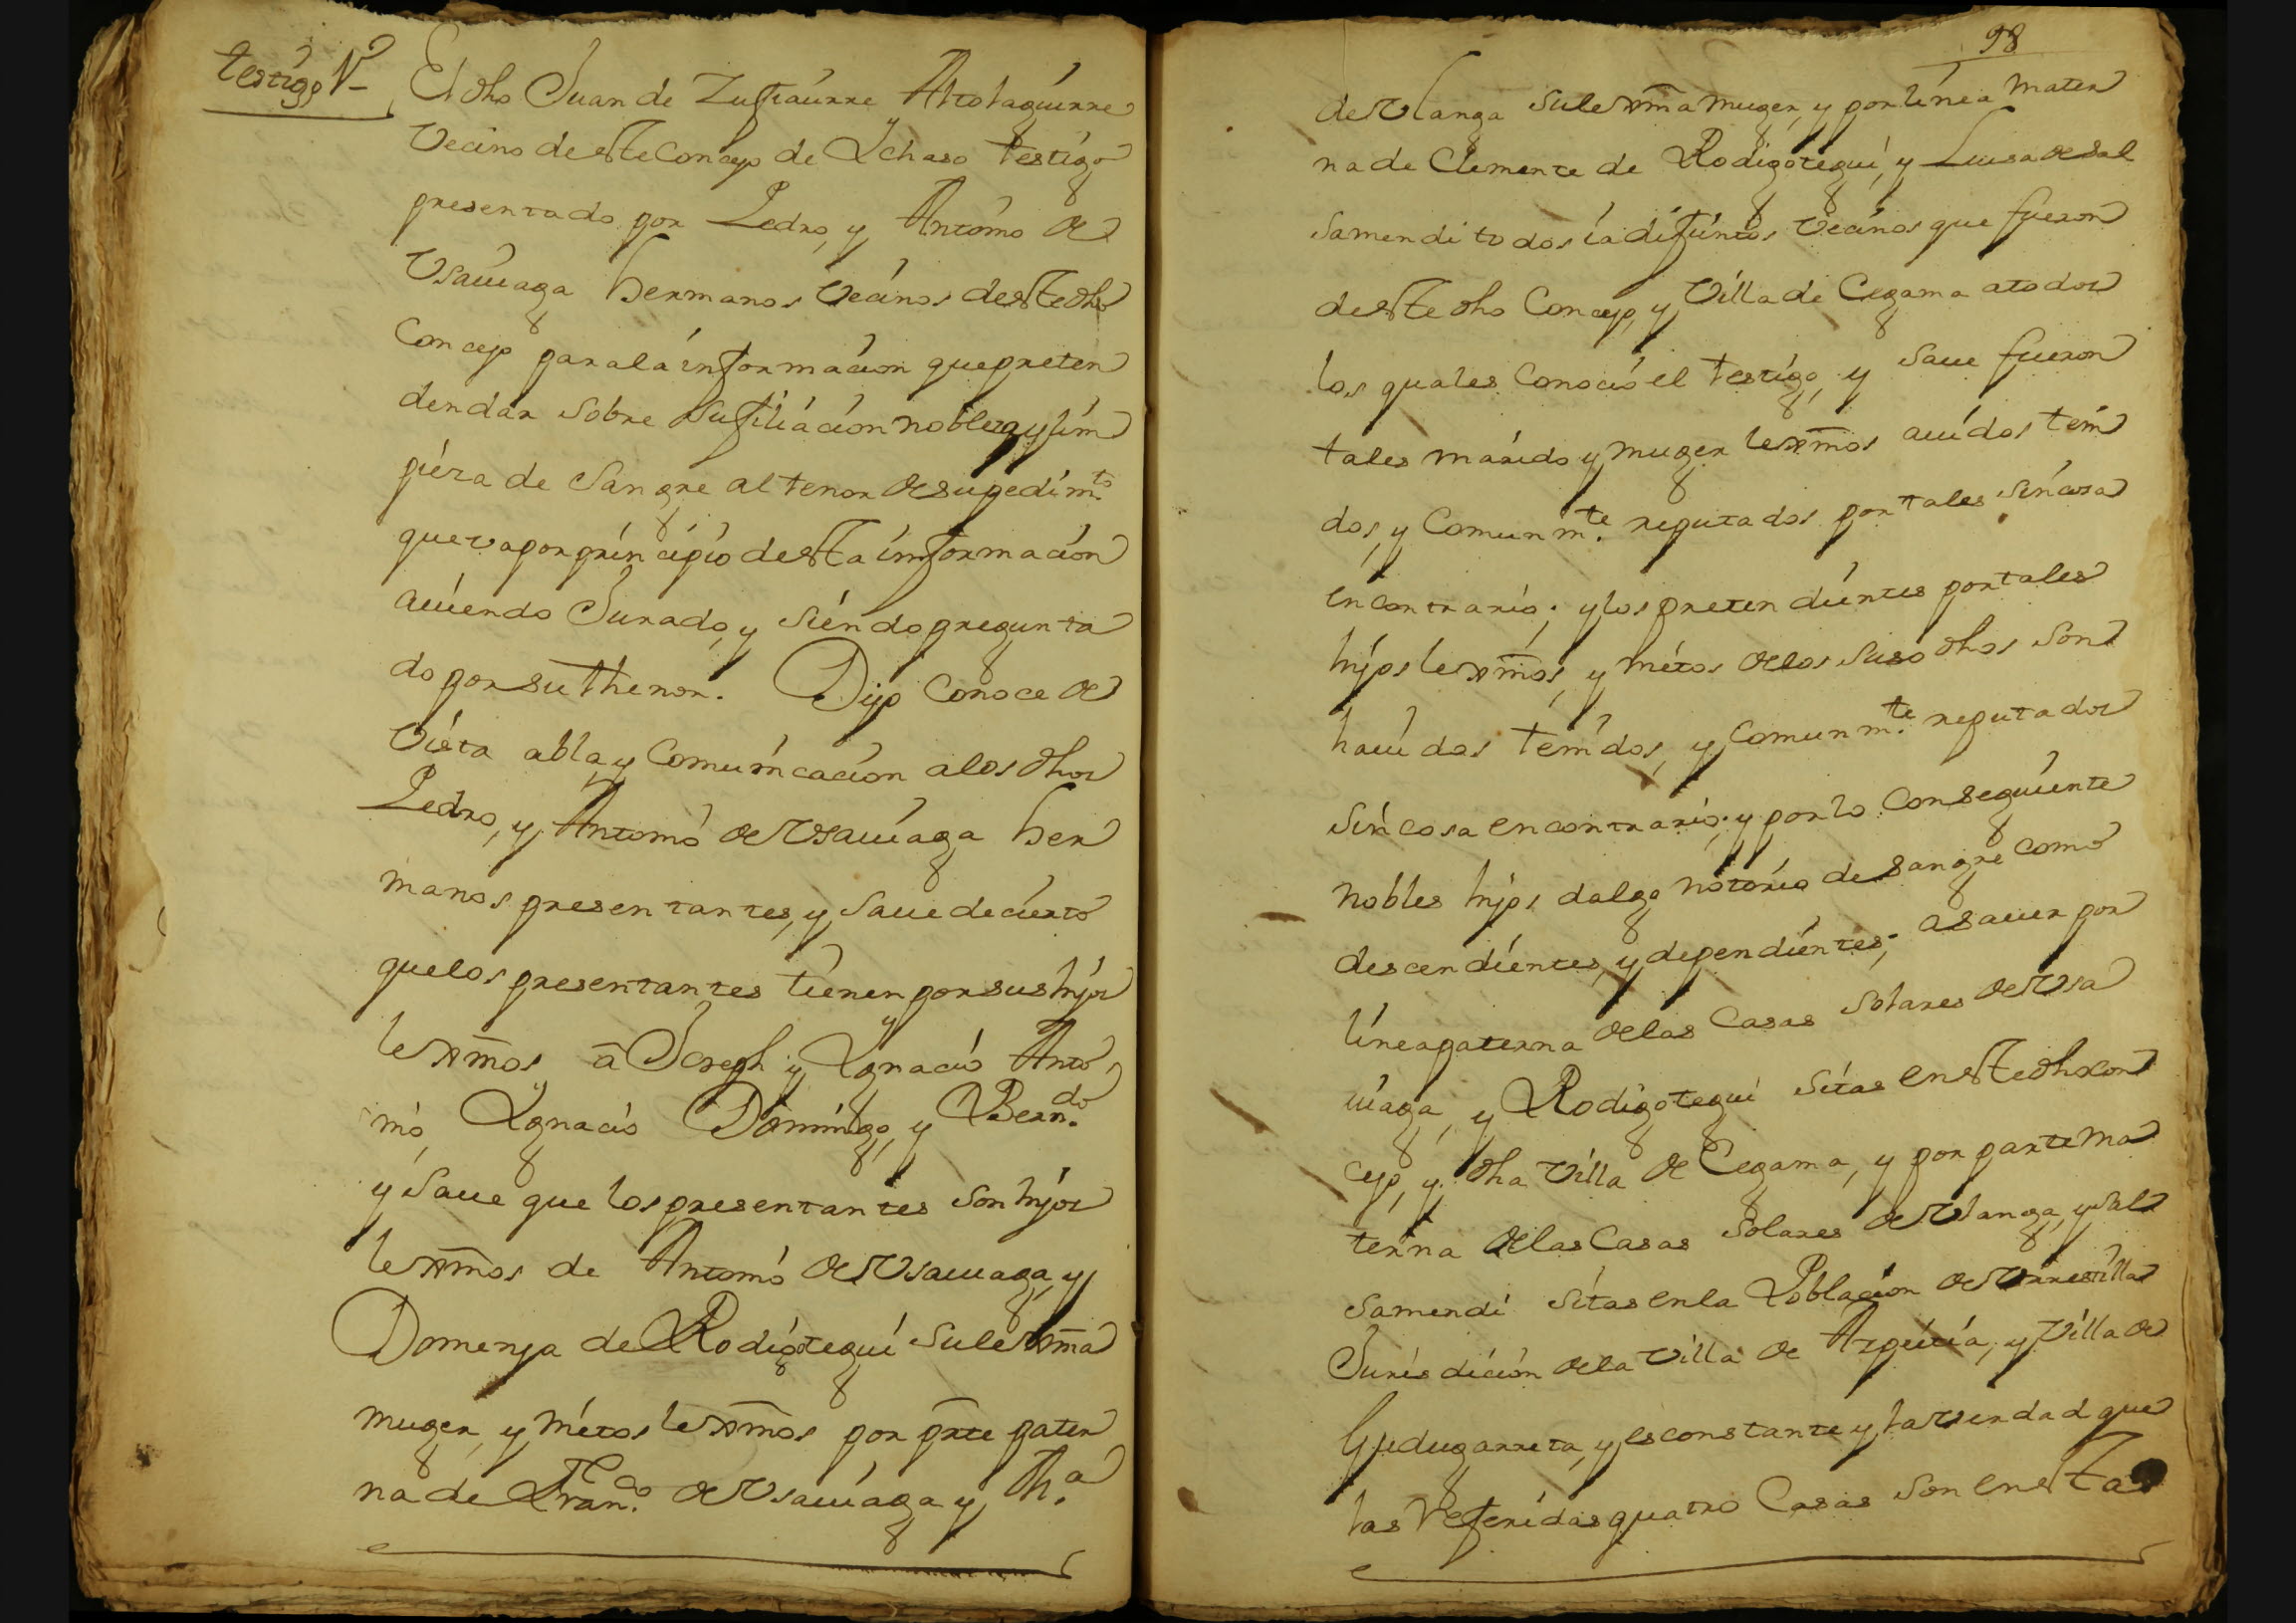 testigo V
El dho Juan de Zufiaurre Atolaguirre
Vecino deste Concejo de Ychaso testigo
presentado por Pedro, y Antonio de
Vsauiaga hermanos Vecinos deste dho
Concejo para la informacion que preten
den dar sobre su filiacion nobleza y lim
pieza de Sangre al tenor de su pedimto
que va por principio desta informacion
auiendo Jurado, y siendo pregunta
do por su thenor. Dijo Conoce de
Vista abla, y Comunicacion a los dhos
Pedro, y Antonio de Vsauiaga her
manos presentantes, y Saue de cierto
que los presentantes tienen por sus hijos
lexmos a Joseph y Ygnacio Anto
nio, Ygnacio Domingo, y Bern.do
y Saue que los presentantes son hijos
lexmos de Antonio de Vsauiaga, y
Domenja de Rodigotegui su lexma
muger, y nietos lexmos por prte pater
na de Fran.co de Vsauiaga y, Mª
98
de Vlanga su lexma muger, y por linea mater
na de Clemente de Rodigotegui, y Luisa de Sal
samendi todos ia difuntos Vecinos que fueron
deste dho Concejo, y Villa de Cegama a todos
los quales Conocio el testigo, y Saue fueron
tales marido y muger lexmos auidos teni
dos, y Comunm.te reputados por tales sin cosa
en contrario; y los pretendientes por tales
hijos lexmos, y nietos de los suso dhos son
hauidos tenidos, y Comunm.te reputados
sin cosa en contrario; y por lo Conseguiente
nobles hijos dalgo notorios de sangre como
descendientes, y dependientes; a sauer por
linea paterna de las Casas Solares de Vsa
uiaga, y Rodigotegui sitas en este dho con
cejo, y dha Villa de Cegama, y por parte ma
terna de las Casas Solares de Vlanga, y Sal
samendi sitas en la Poblacion de Vrrestilla
Jurisdicion de la Villa de Azpeitia, y Villa de
Gudugarreta, y es constante y la verdad que
las Referidas quatro Casas son en esta